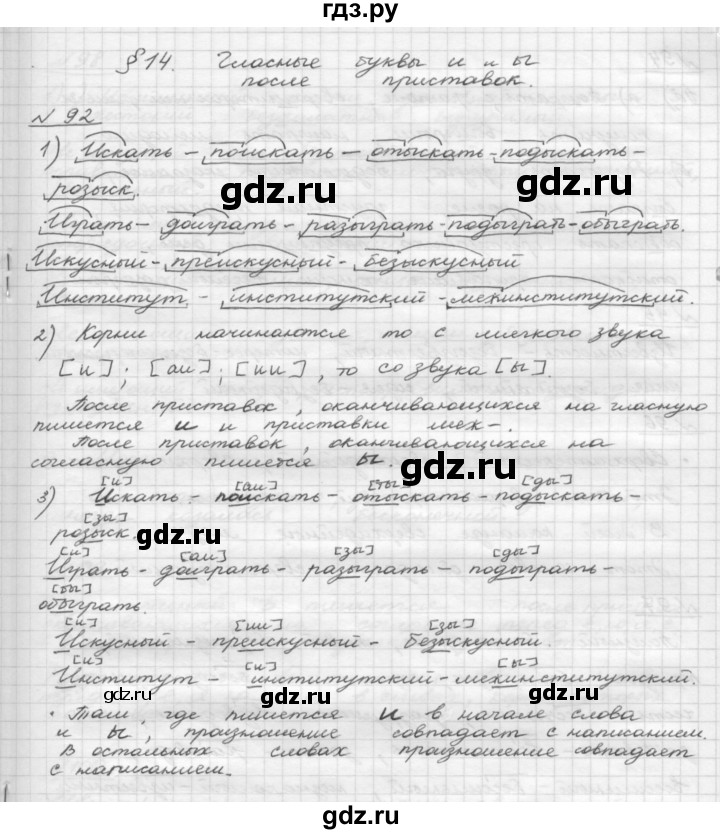 гдз.ру
§ 14. Гласные буквы и и ы
после приставок.
№ 92
1) Искать – поискать – отыскать – подыскать –
розыск.
gdz.ru gdz.ru
Играть – доиграть – разыграть – подыграть – обыграть.
Искусный – преискусный – безыскусный
Институт – институтский – межинститутский.
2) Корни начинаются то с мягкого звука
[и]; [аи]; [ии], то со звука [ы].
После приставок, оканчивающихся на гласную
пишется и и приставки меж-.
После приставок, оканчивающихся на
согласную пишется ы.
gdz.ru
[и] [аи] [ты] [ды]
3) Искать – поискать – отыскать – подыскать –
[зы]
розыск.
gdz.ru
[и] [аи] [зы] [ды]
Играть – доиграть – разыграть – подыграть –
[бы]
обыграть.
[и] [ии] [зы]
Искусный – преискусный – безыскусный.
gdz.ru
[и] [и] [ы]
Институт – институтский – межинститутский.
gdz.ru gdz.ru gdz.ru
Там, где пишется и в начале слова
и ы, произношение совпадает с написанием.
В остальных словах произношение совпадает
с написанием.
gdz.ru